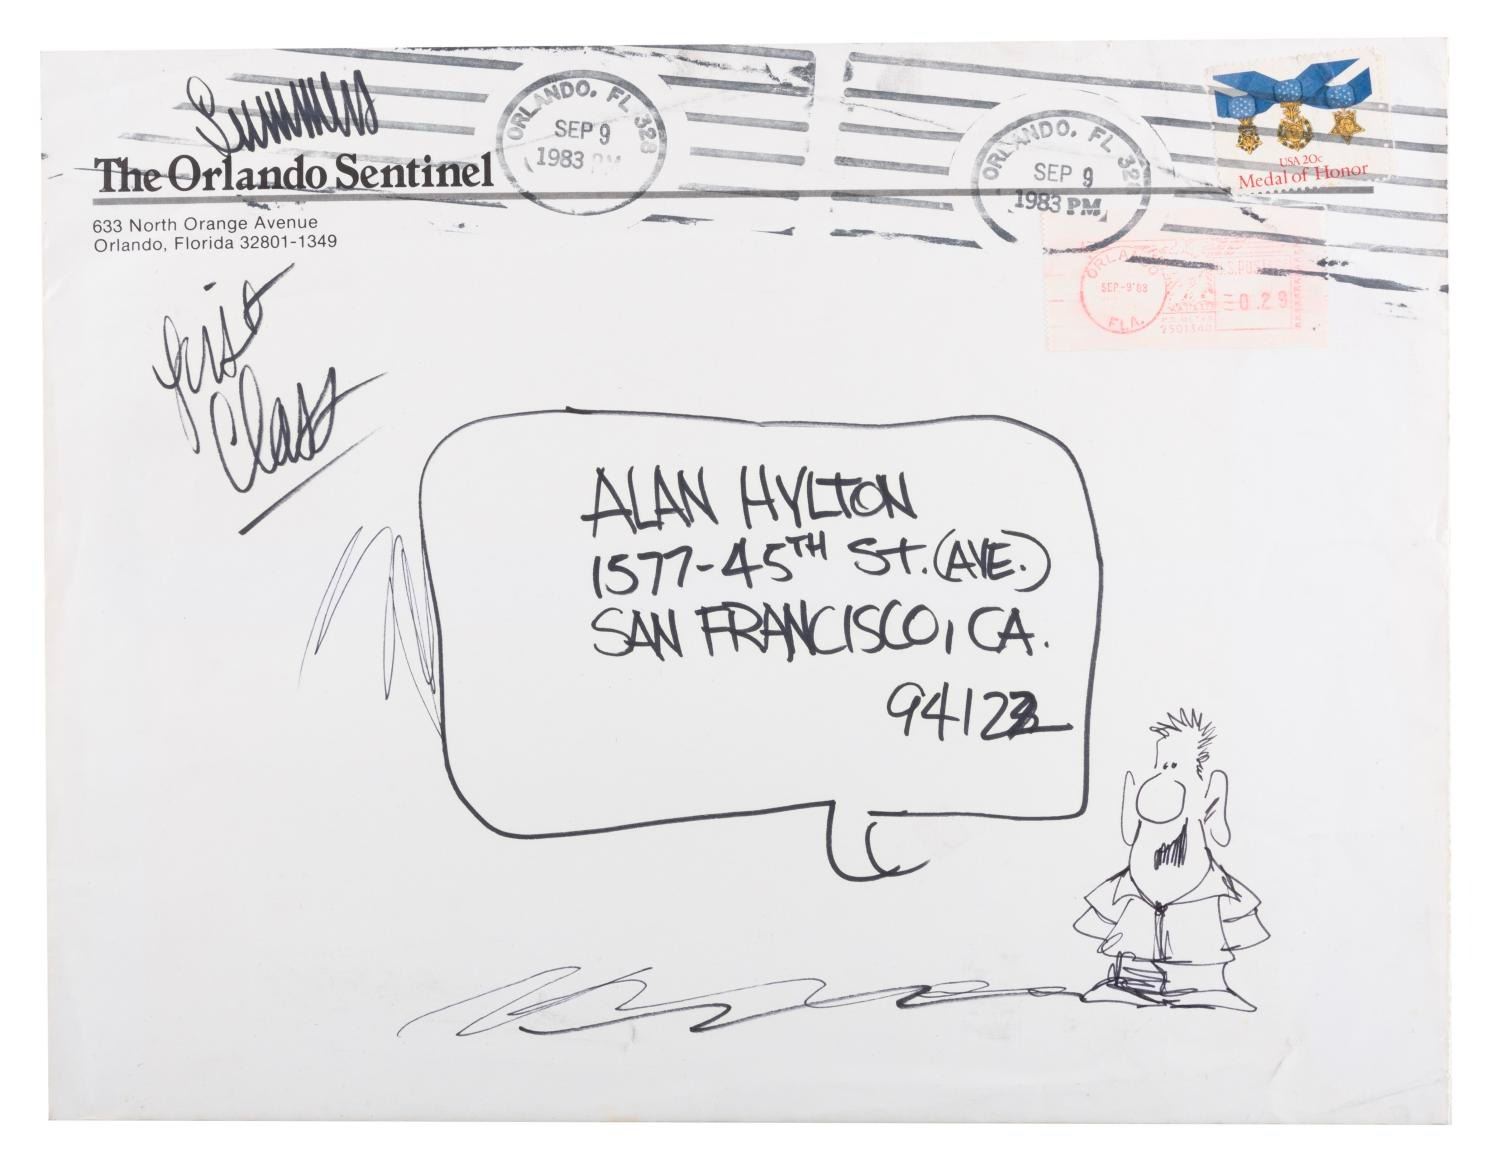 Summers
The Orlando Sentinel
633 North Orange Avenue
Orlando, Florida 32801-1349
ORLANDO, FL 328
SEP 9
1983 PM
ORLANDO, FL 328
SEP 9
1983 PM
USA 20c
Medal of Honor
ORLANDO
SEP-9'83
FLA.
U.S. POSTAGE
0.29
P.B. METER
First
Class
ALAN HYLTON
1577-45TH ST. (AVE.)
SAN FRANCISCO, CA.
94122